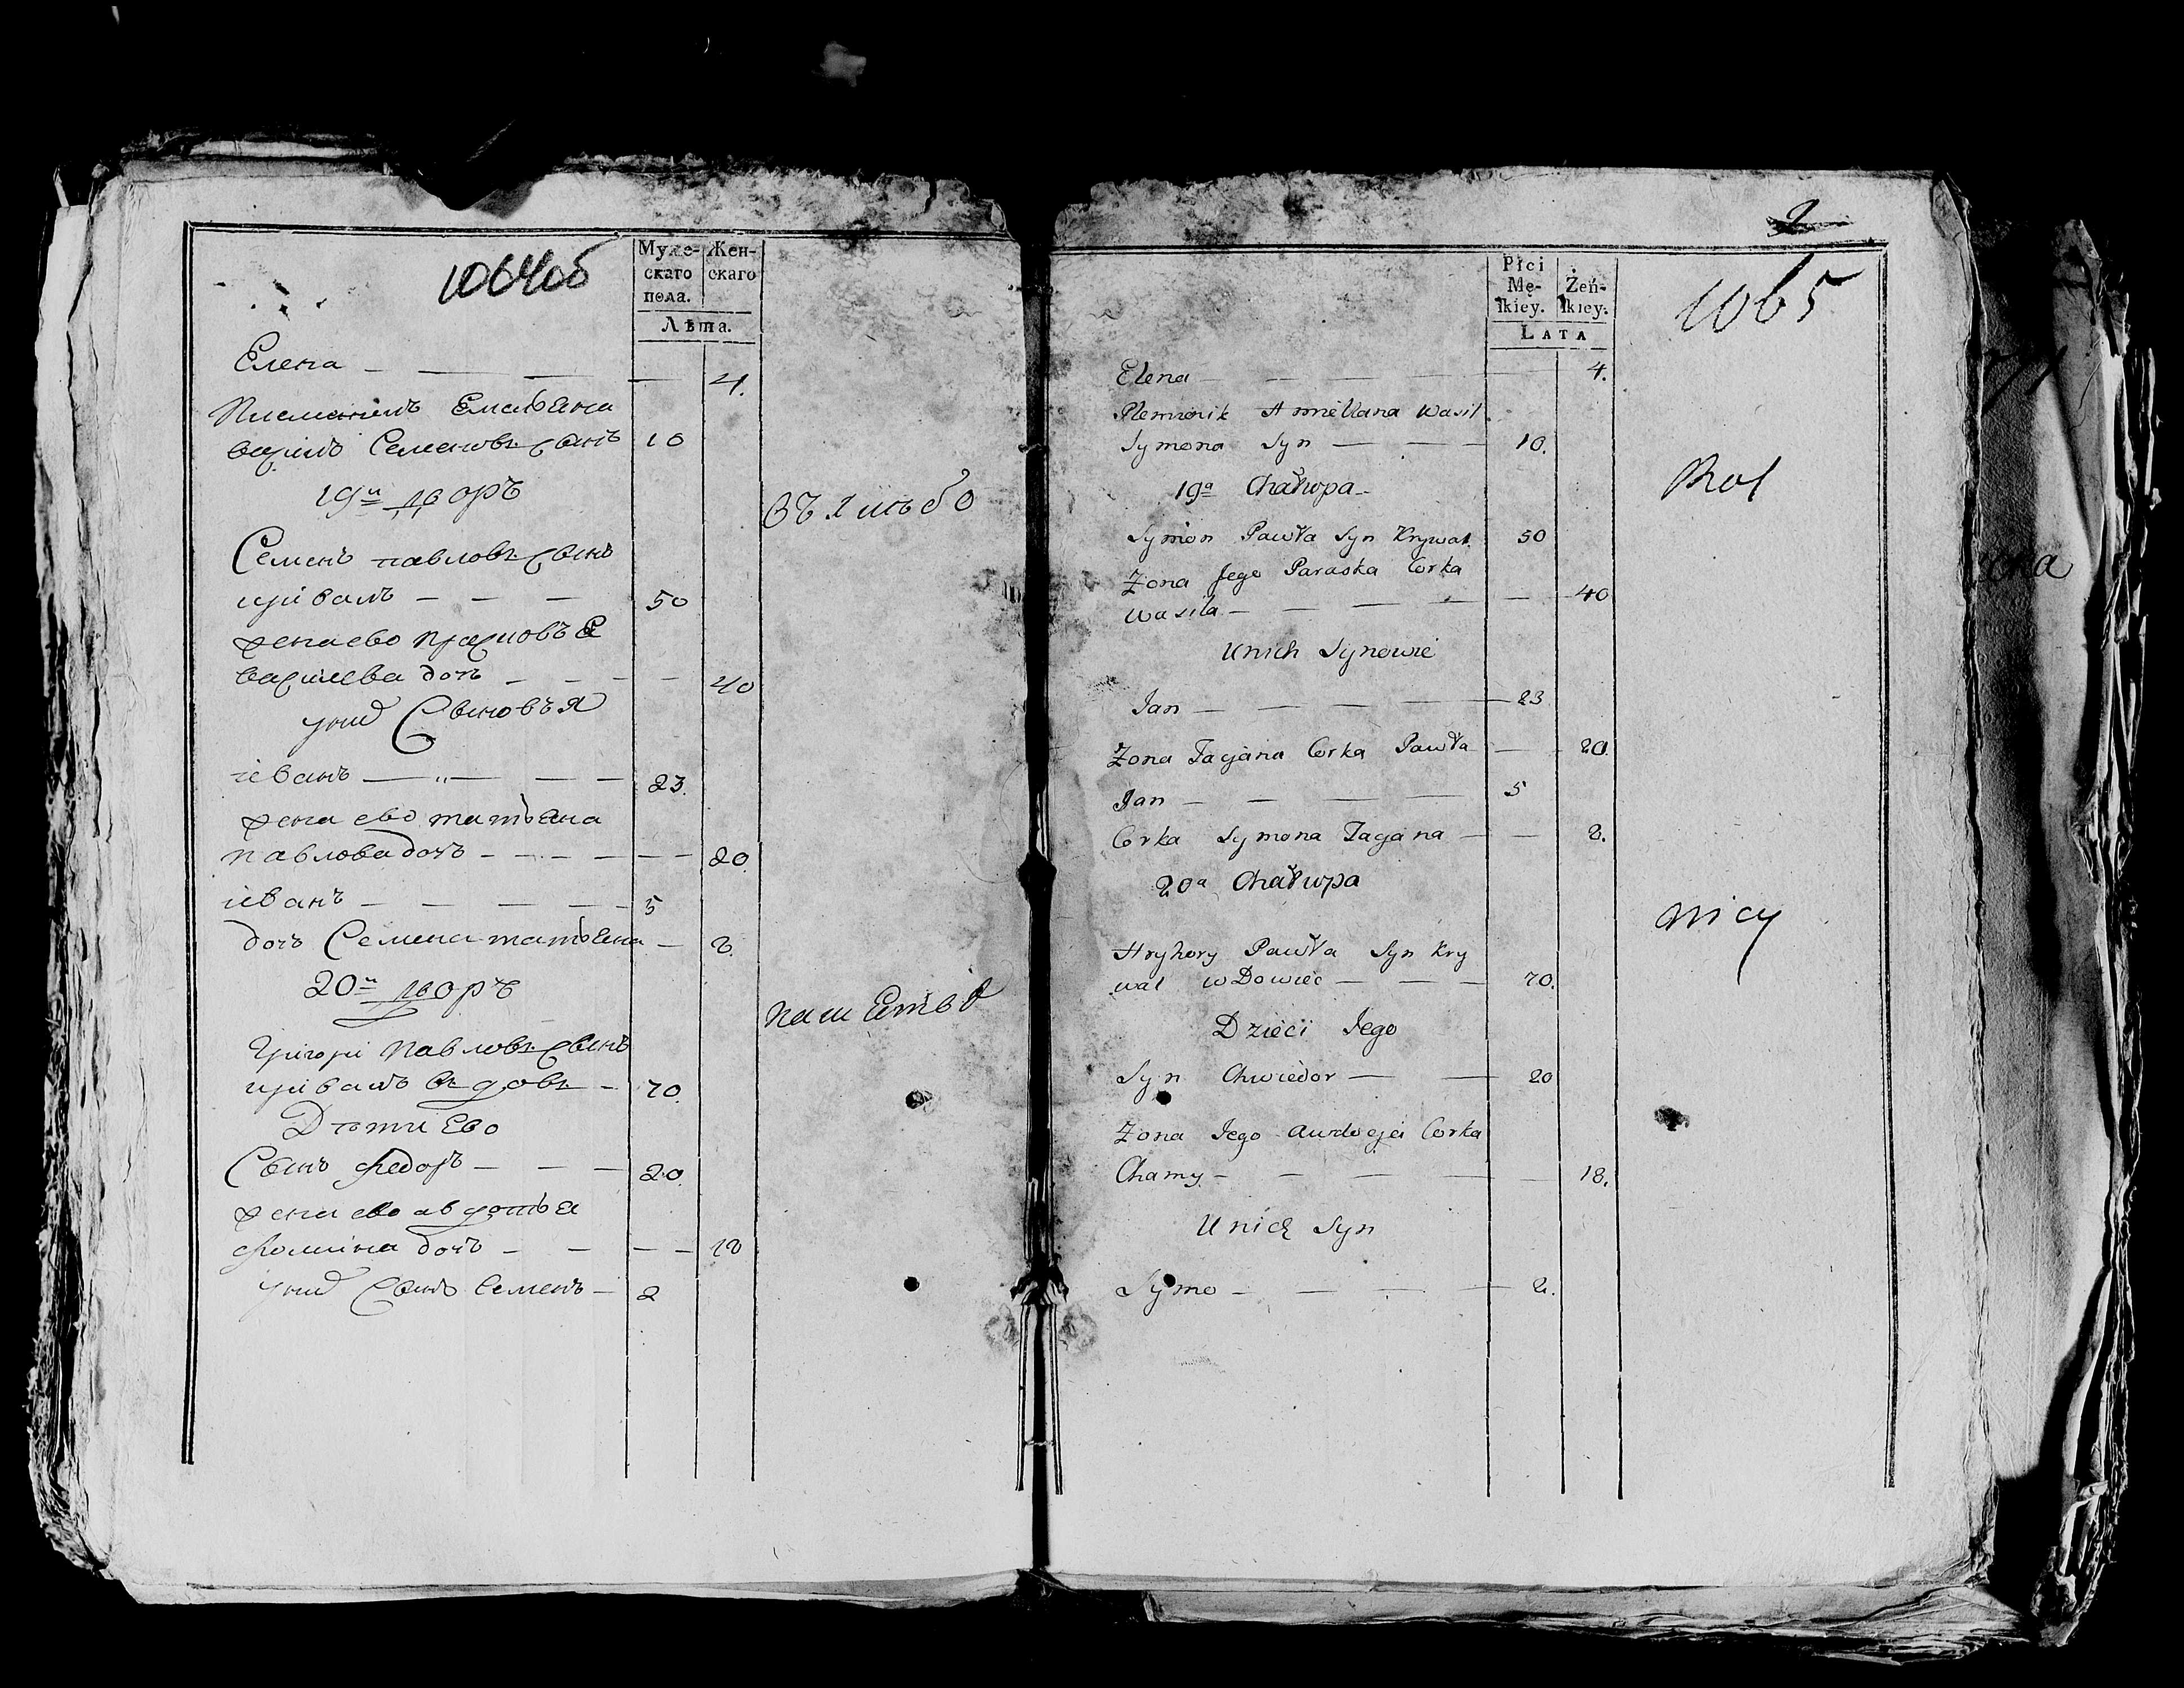 1064об
Муже-
скаго
пола.
Жен-
скаго
Лѣта.
Елена
4.
Племянникъ Емельяна
василь Семеновъ сынъ 10
19й дворъ
Семенъ павловъ сынъ
кривалъ 50
жена ево
василева дочь 40
у них Сыновья
иванъ 23.
жена ево татьяна
павлова дочь 20.
иванъ 5
дочь Семена татьяна 2.
20й дворъ
Григори павловъ сынъ
кривалъ вдовъ 70.
Дѣти Ево
Сынъ Федоръ 20.
жена ево авдотья
Фомина дочь 18
у них Сынъ Семенъ 2
2
Płci
Mę-
ſkiey.
Żeń-
ſkiey.
LATA
1065
Elena 4.
Plemienik Amiellana Wasil
Symona Syn 10.
19a Chałupa
Rol
Symon Pawła Syn Krywal 50
Zona Jego Paraska Corka
Wasila 40
Unich Synowie
Jan 23
Zona Tacjana Corka Pawła 20.
Jan 5
Corka Symona Tagana 2.
20a Chałupa
nicy
Hryhory Pawła Syn Kry
wal wDowiec 70.
Dzieci Jego
Syn Chwiedor 20
Zona Jego Corka
Chamy 18.
Unich Syn
Symo 2.